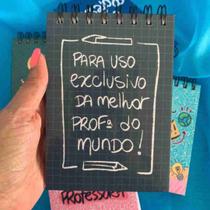 PARA USO
exclusivo
DA melhor
PROFª do
MUNDO!
PROFESSORA